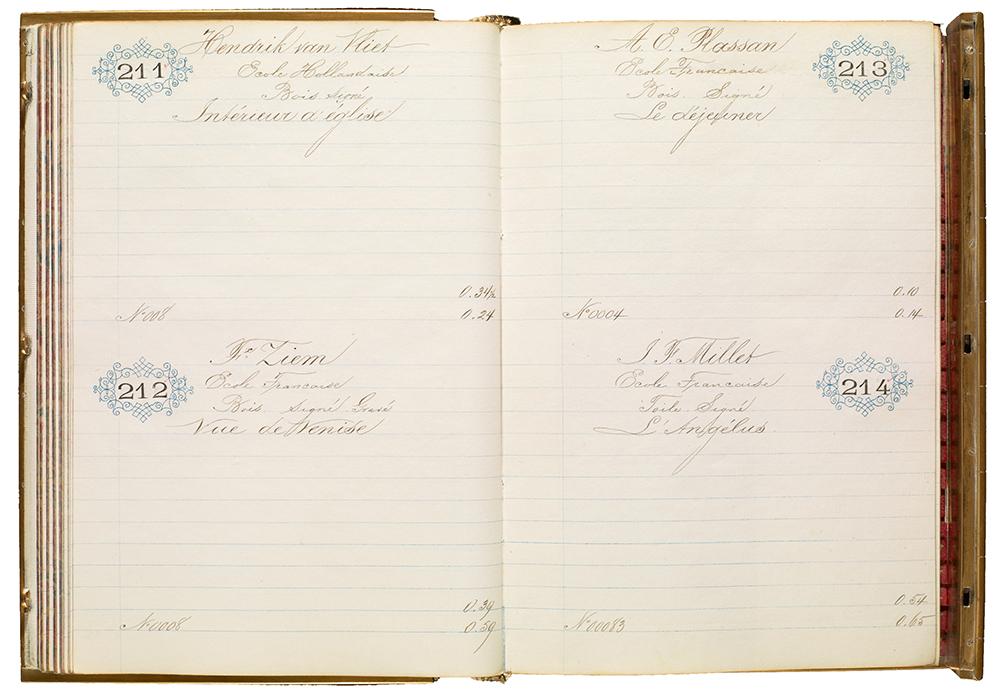 211
Hendrik van Vliet
Ecole Hollandaise
Bois signé
Intérieur d'église
0.34½
N°008 0.24
212
Fx Ziem
Ecole Francaise
Bois signé Gravé
Vue de Venise
0.39
N°0008 0.59
213
A. E. Plassan
Ecole Francaise
Bois. Signé
Le déjeuner
0.10
N°0004 0.14
214
J F Millet
Ecole Francaise
Toile Signé
L'Angélus.
0.54
N°00083 0.65